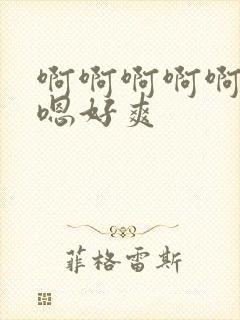 啊啊啊啊啊
嗯好爽
菲格雷斯